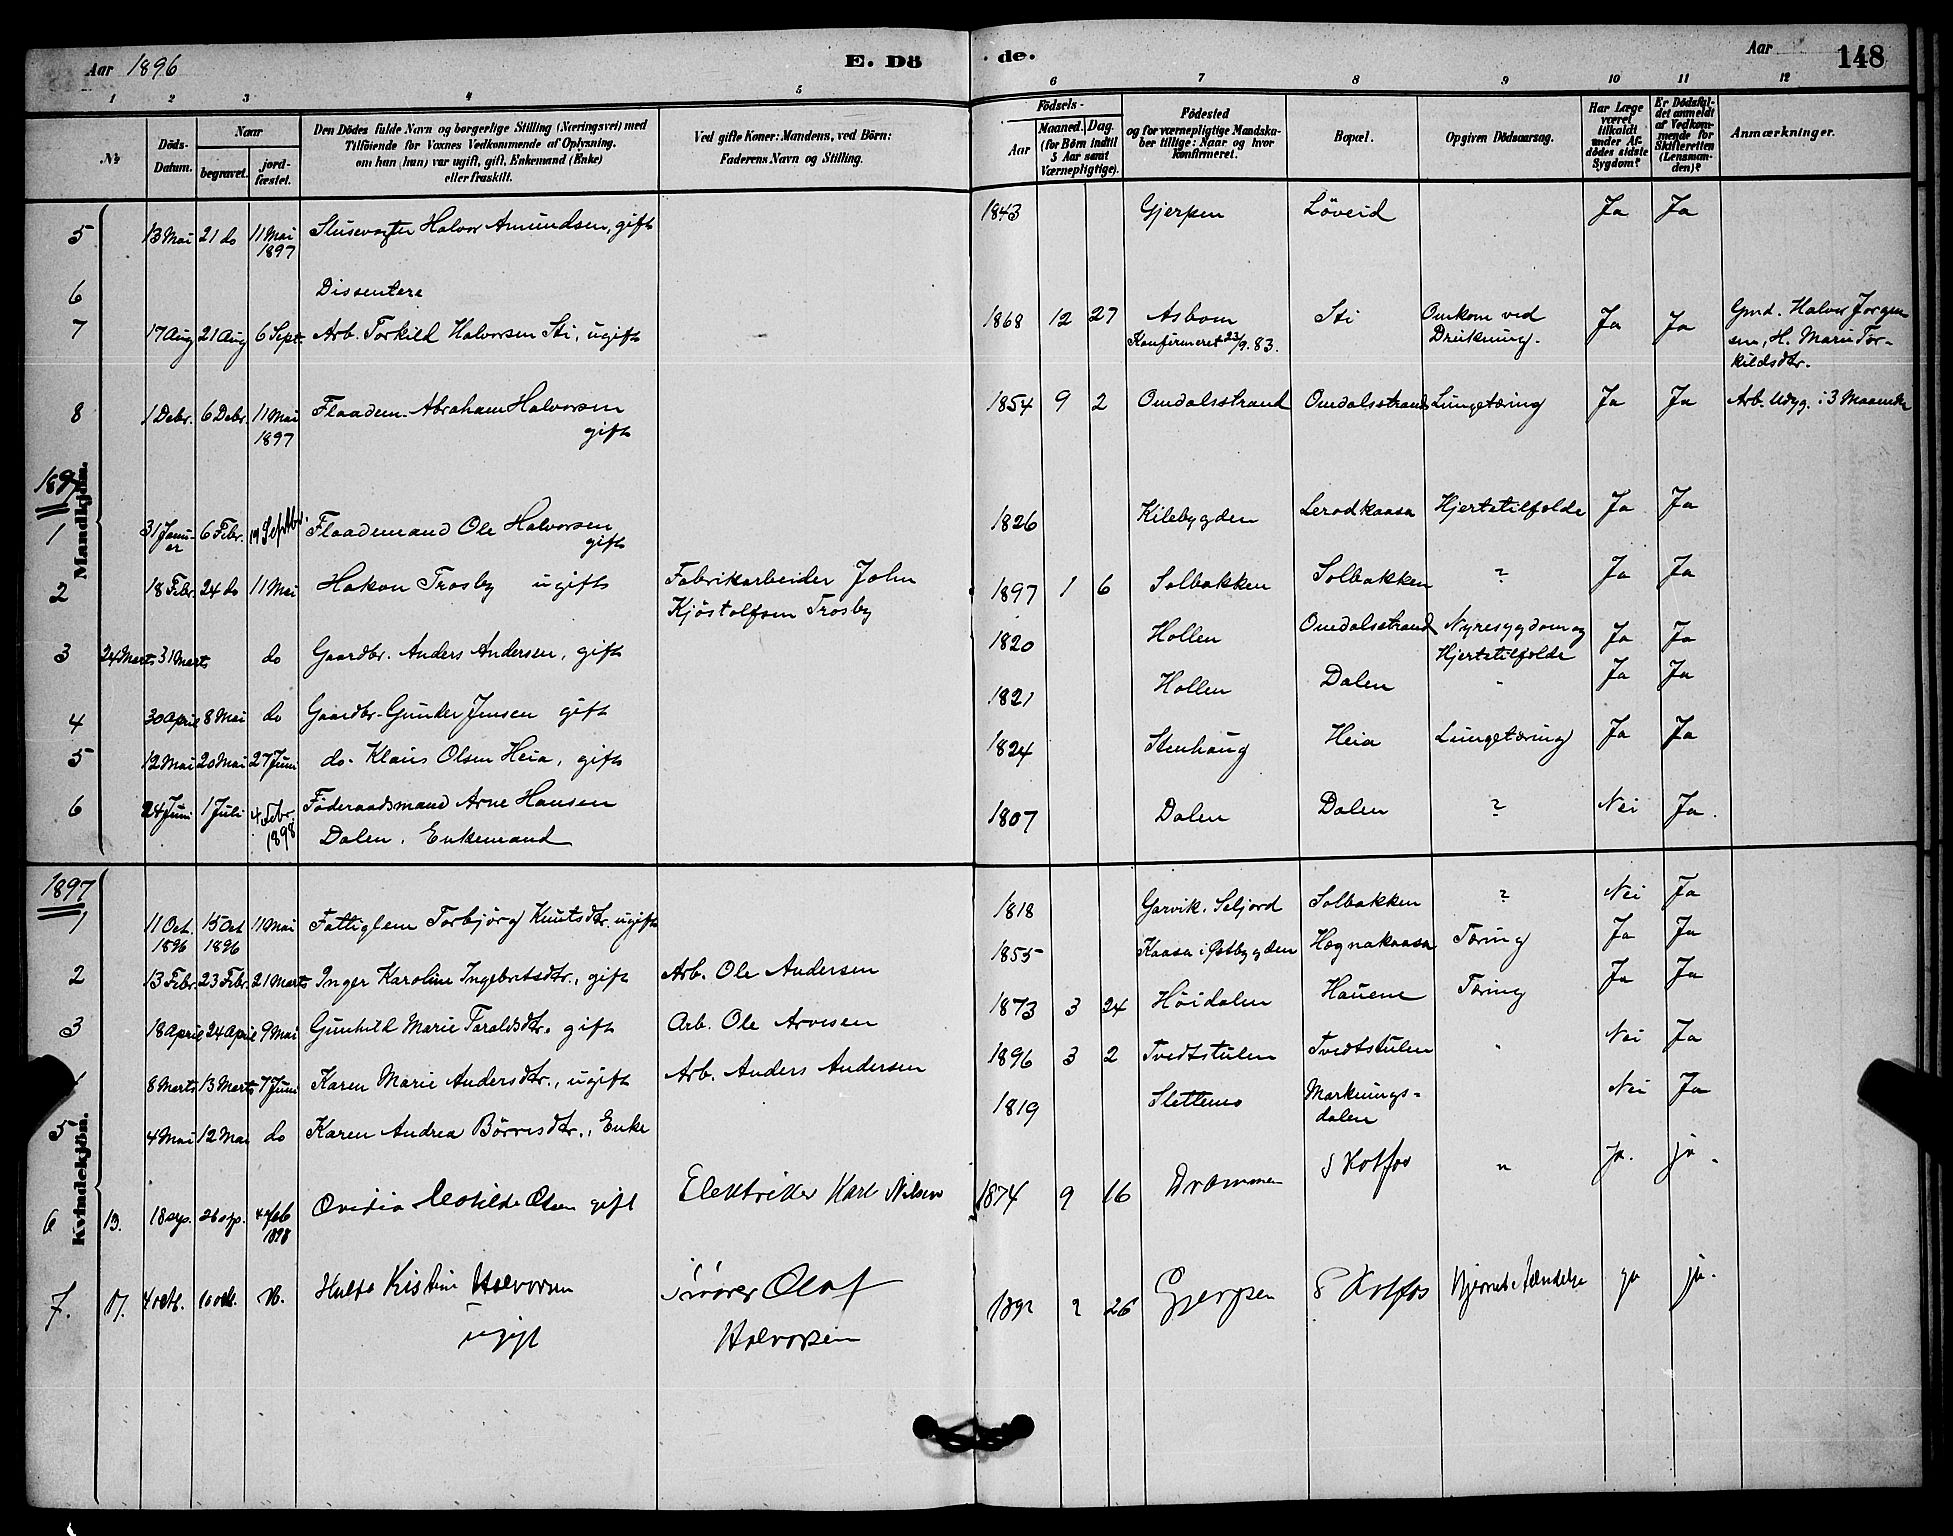 Aar 1896 E. Dö
1 2 3 4 5
№ Döds-Datum. Naar begravet. jord-fæstet.
Den Dödes fulde Navn og borgerlige Stilling (Næringsvei) med
Tilföiende for Voxnes Vedkommende af Oplysning.
om han (hun) var ugift, gift, Enkemand (Enke)
eller fraskilt.
Ved gifte Koner: Mandens, ved Börn:
Faderens Navn og Stilling.
Mandkjön.
5 13 Mai 21 do 11 Mai Slusevogter Halvor Amundsen, gift
1897
6 Dissentere
7 17 Aug 21 Aug 6 Sept. Arb. Torkild Halvorsen Sti, ugift
8 1 Debr. 6 Debr. 11 Mai Flaadem. Abraham Halvorsen
1897 gift
1897
1 31 Janu- 6 Febr. 19 Septbr. Flaademand Ole Halvorsen
ar gift
2 18 Febr. 24 do 11 Mai Hakon Trosby ugift Fabrikarbeider John
Kjöstolfsen Trosby
3 24 Marts 31 Marts do Gaardbr. Anders Andersen, gift
4 30 April 8 Mai do Gaardbr. Gunder Jensen gift
5 12 Mai 20 Mai 27 Juni do. Klaus Olsen Heia, gift
6 24 Juni 1 Juli 4 Febr. Föderaadsmand Arne Hansen
1898 Dalen. Enkemand
1897
Kvindekjön.
1 11 Oct. 15 Oct 11 Mai Fattiglem Torbjörg Knutsdtr. ugift
1896 1896
2 13 Febr. 23 Febr. 21 Marts Inger Karoline Ingebretsdtr., gift Arb. Ole Andersen
3 18 April 24 April 9 Mai Gunhild Marie Taraldsdtr. gift Arb. Ole Arvesen
8 Marts 13 Marts 7 Juni Karen Marie Andersdtr., ugift Arb. Anders Andersen
5 4 Mai 12 Mai do Karen Andrea Börresdtr., Enke
6 13. 18 sep. 26 sep. 4 Feb Ovidia Motilde Olsen gift Elektriker Karl Nilsen
1898
7. 17. 4 octb. 10 octb. Hulda Kistine Halvorsen Olaf
ugift Halvorsen
de. Aar 148
6 7 8 9 10 11 12
Födsels-
Aar Maaned. Dag.
(for Börn indtil
5 Aar samt
Værnepligtige).
Födested
og for værnepligtige Mandska-
ber tillige: Naar og hvor
Konfirmeret.
Bopæl.
Opgiven Dödsaarsag.
Har Læge
været
tilkaldt
under Af-
dödes sidste
Sygdom?
Er Dödsfal-
det anmeldt
af Vedkom-
mende for
Skifteretten
(Lensman-
den)?
Anmærkninger.
1843 Gjerpen Löveid Ja Ja
1868 12 27 Asbom Sti Omkom ved Ja Ja Gmd. Halvor Jörgen
Konfirmeret 23/9. 83. Drukning. sen, H. Marie Tor-
kildsdtr.
1854 9 2 Omdalsstrand Omdalsstrand Lungetæring Ja Ja Arb. udyg. i 3 Maaneder
1826 Kilebygden Lerodkaasa Hjertetilfælde Ja Ja
1897 1 6 Solbakken Solbakken ? Ja Ja
1820 Hollen Omdalsstrand Nyresygdom og Ja Ja
Hjertetilfælde
1821 Hollen Dalen " Ja Ja
1824 Stenhaug Heia Lungetæring Ja Ja
1807 Dalen Dalen ? Nei Ja.
1818 Garvik. Seljord Solbakken ? Nei Ja
1855 Kaasa i Østbygden Hognakaasa Tæring Ja Ja
1873 3 24 Höidalen Hauene Tæring Ja Ja
1896 3 2 Tvedtstulen Tvedtstulen " Nei Ja
1819 Slettemo Markungs- Nei Ja
dalen
1874 9 16 Drammen Skotfos " ja. ja.
1892 2 26 Gjerpen Skotfos Hjernebetændelse ja ja.